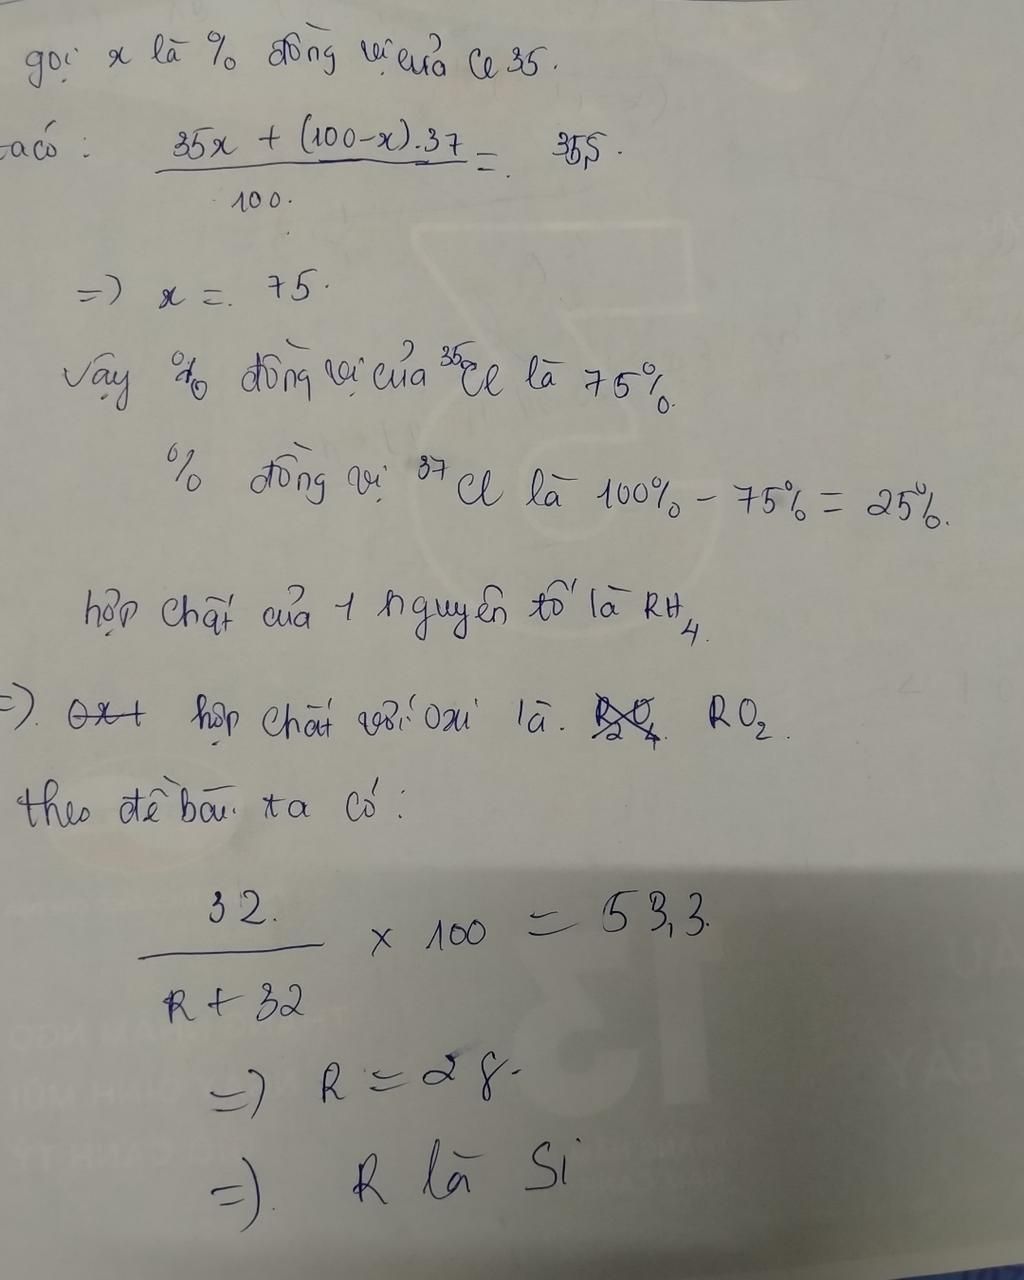 gọi x là % đồng vị của Cl 35.
ta có : 35x + (100-x).37 / 100. = 35,5.
=) x = 75.
Vậy % đồng vị của ³⁵Cl là 75%.
% đồng vị ³⁷Cl là 100% - 75% = 25%.
hợp chất của 1 nguyên tố là RH₄.
=). hợp chất với oxi là. RO₂.
theo đề bài ta có :
32. / R + 32 x 100 = 53,3.
=) R = 28.
=). R là Si
13